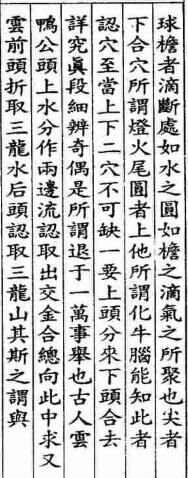 球檐者滴斷處如水之圓如檐之滴氣之所聚也尖者
下合穴所謂燈火尾圓者上他所謂化牛腦能知此者
認穴至當上下二穴不可缺一要上頭分來下頭合去
詳究眞段細辨奇偶是所謂退于一萬事舉也古人雲
鴨公頭上水分作兩邊流認取出交金合總向此中求又
雲前頭折取三龍水后頭認取三龍山其斯之謂與